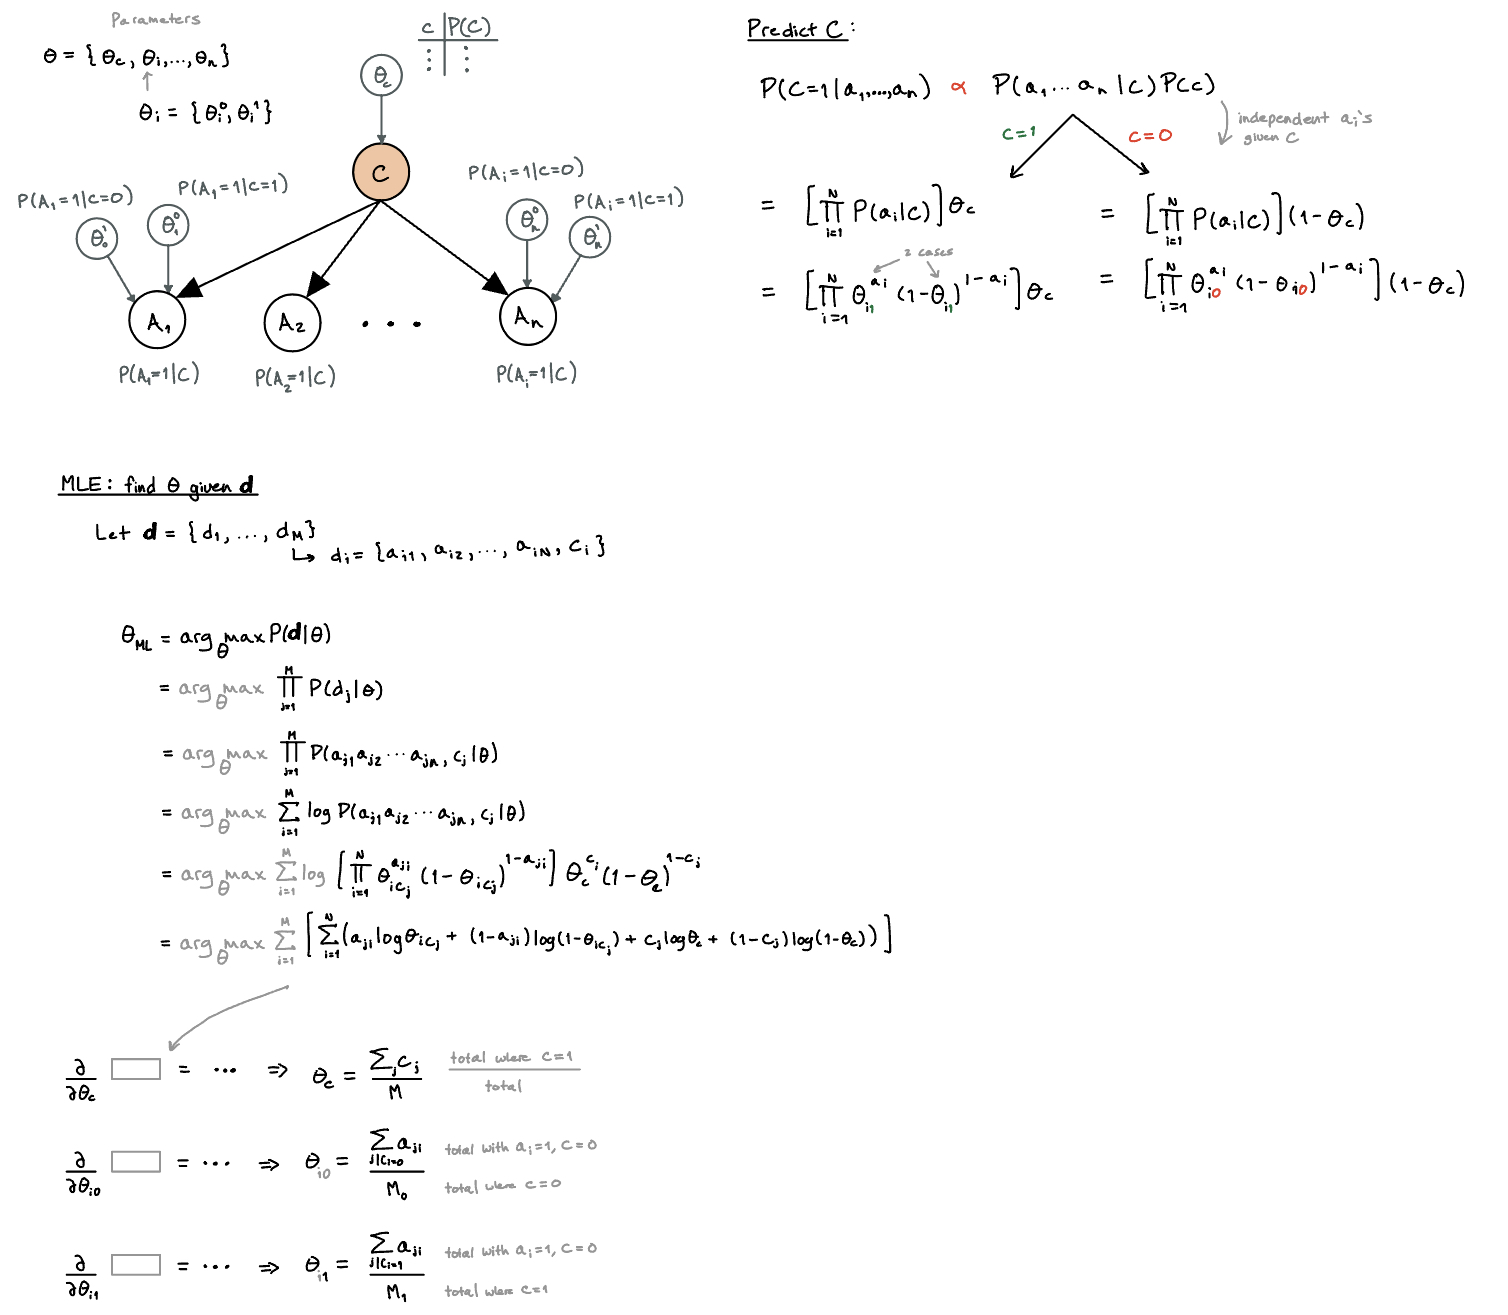 Parameters
θ = { θ_c, θ_i, ..., θ_n }
θ_i = { θ_i^0, θ_i^1 }
c | P(C)
⋮ | ⋮
θ_c
C
P(A_1=1|C=0)
P(A_1=1|C=1)
P(A_i=1|C=0)
P(A_i=1|C=1)
θ_0^1
θ_1^0
θ_n^0
θ_n^1
A_1
A_2
. . .
A_n
P(A_1=1|C)
P(A_2=1|C)
P(A_i=1|C)
Predict C:
P(C=1|a_1,...,a_n) ∝ P(a_1 ... a_n | c) P(c)
independent a_i's
given C
C=1
C=0
= [∏_{i=1}^N P(a_i|c)] θ_c
= [∏_{i=1}^N P(a_i|c)] (1-θ_c)
2 cases
= [∏_{i=1}^N θ_{i1}^{a_i} (1-θ_{i1})^{1-a_i}] θ_c
= [∏_{i=1}^N θ_{i0}^{a_i} (1-θ_{i0})^{1-a_i}] (1-θ_c)
MLE: find θ given d
Let d = { d_1, ..., d_M }
↳ d_i = { a_{i1}, a_{i2}, ..., a_{iN}, c_i }
θ_ML = arg max_θ P(d|θ)
= arg max_θ ∏_{j=1}^M P(d_j|θ)
= arg max_θ ∏_{j=1}^M P(a_{j1} a_{j2} ... a_{jn}, c_j|θ)
= arg max_θ ∑_{i=1}^M log P(a_{j1} a_{j2} ... a_{jn}, c_j|θ)
= arg max_θ ∑_{i=1}^M log [∏_{i=1}^N θ_{ic_j}^{a_{ji}} (1-θ_{ic_j})^{1-a_{ji}}] θ_c^{c_i} (1-θ_c)^{1-c_j}
= arg max_θ ∑_{i=1}^M [∑_{i=1}^N (a_{ji} log θ_{ic_j} + (1-a_{ji}) log(1-θ_{ic_j}) + c_j log θ_c + (1-c_j) log(1-θ_c))]
∂/∂θ_c = ... ⇒ θ_c = ∑_j c_j / M
total where C=1
total
∂/∂θ_{i0} = ... ⇒ θ_{i0} = ∑_{j|c_i=0} a_{ji} / M_0
total with a_i=1, C=0
total where C=0
∂/∂θ_{i1} = ... ⇒ θ_{i1} = ∑_{j|c_i=1} a_{ji} / M_1
total with a_i=1, C=0
total where C=1